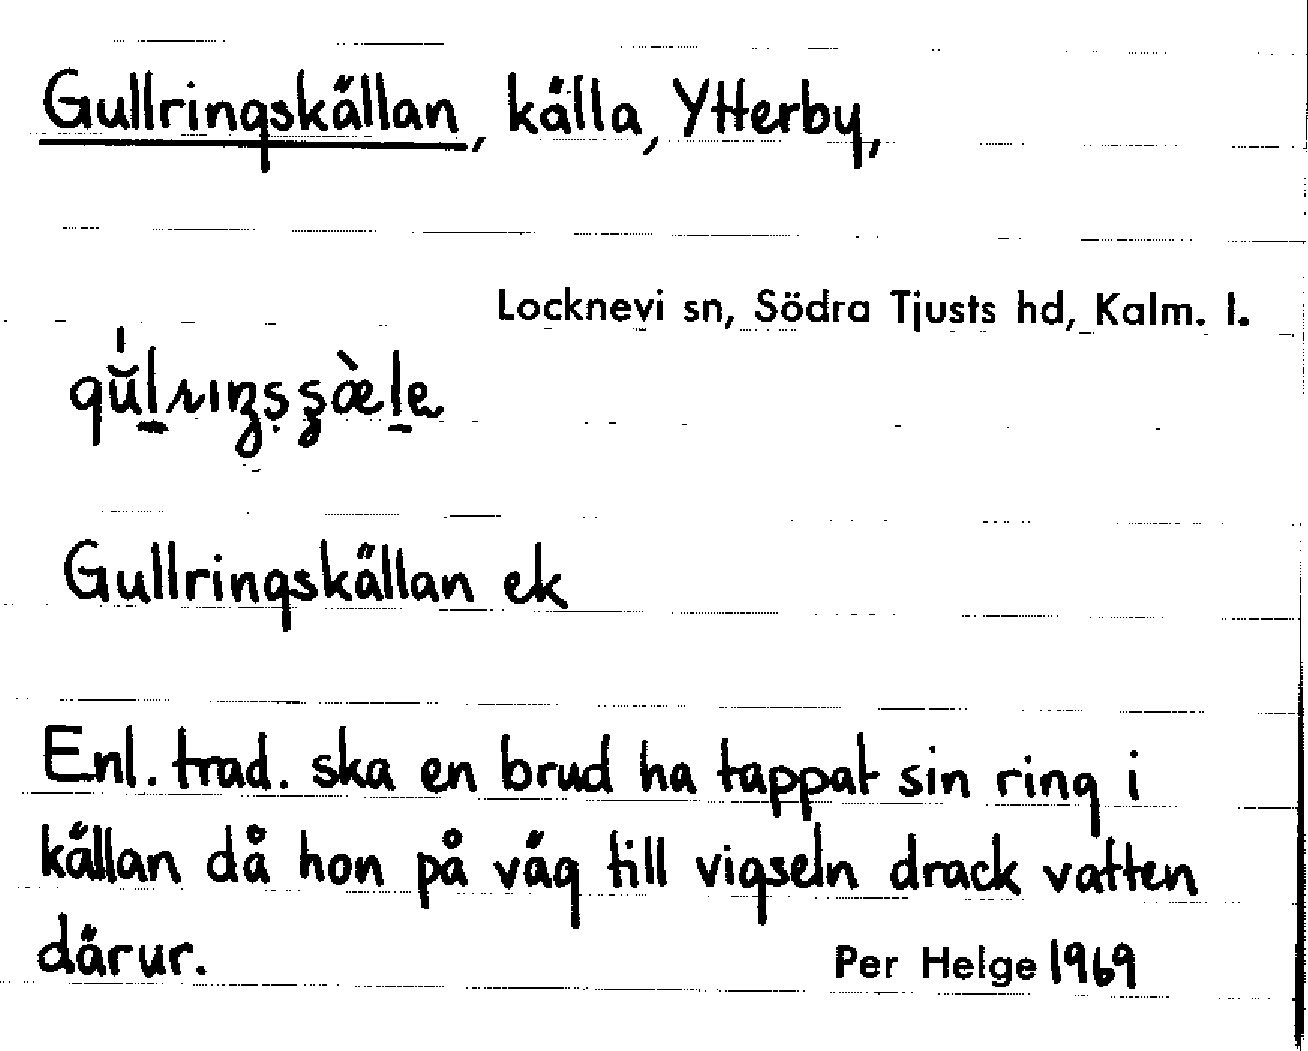 Gullringskällan, källa, Ytterby,
Locknevi sn, Södra Tjusts hd, Kalm. l.
Gullringskällan ek
Enl. trad. ska en brud ha tappat sin ring i
källan då hon på väg till vigseln drack vatten
därur.
Per Helge 1969